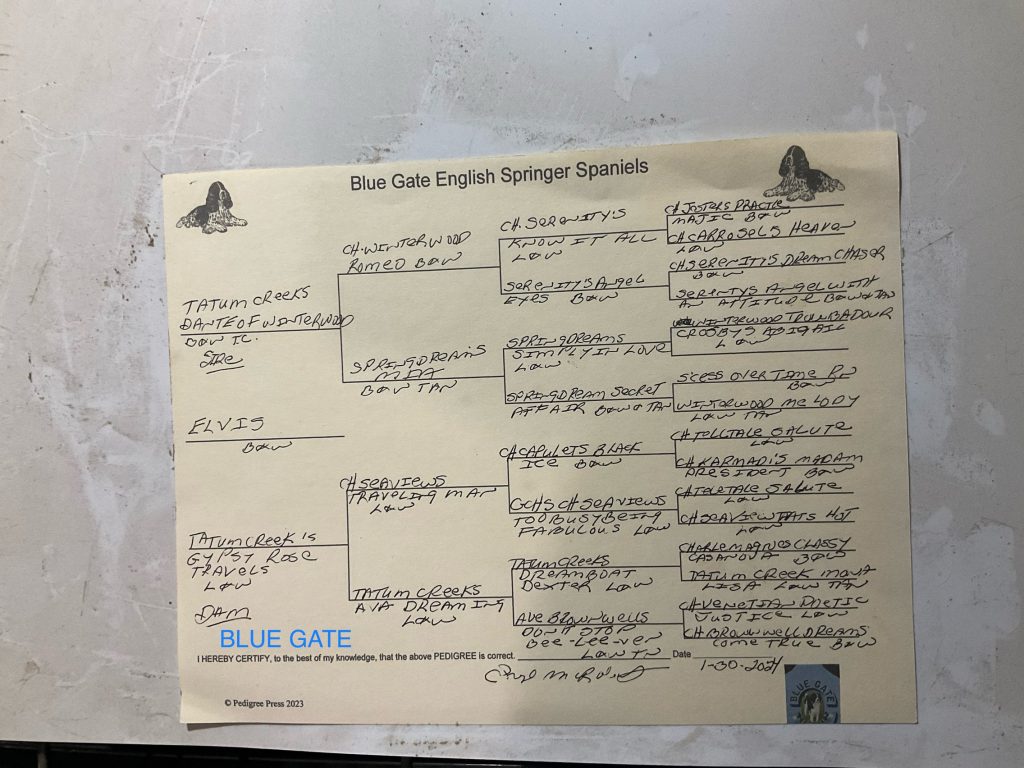 Blue Gate English Springer Spaniels
TATUM CREEKS
DANTE OF WINTERWOOD
B&W IC.
SIRE
ELVIS
B&W
TATUM CREEK'S
GYPSY ROSE
TRAVELS
L&W
DAM
CH. WINTERWOOD
ROMEO B&W
SPRINGDREAMS
MIA
B&W TAN
CH SEAVIEWS
TRAVELING MAN
L&W
TATUM CREEKS
AVA DREAMING
L&W
CH. SERENITY'S
KNOW IT ALL
L&W
SERENITY'S ANGEL
EYES B&W
SPRINGDREAMS
SIMPLY IN LOVE
L&W
SPRINGDREAM SECRET
AFFAIR B&W & TAN
CH CAPULETS BLACK
ICE B&W
GCHS CH SEAVIEWS
TOO BUSY BEING
FABULOUS L&W
TATUM CREEKS
DREAMBOAT
DEXTER L&W
AVE BROWNWELLS
DON'T STOP
BEE-LEE-VEN
L&W TN
CH JESTERS PRACTIC
MATIC B&W
CH CARROSELS HEAVEN
L&W
CH SERENITY'S DREAM CHASER
B&W
SERENITYS ANGEL WITH
AN ATTITUDE B&W & TAN
WINTERWOOD TROUBADOUR
CROSBYS ABIGAIL
L&W
OVERTIME
B&W
WINTERWOOD MELODY
L&W TAN
CH TELLTALE SALUTE
L&W
CH KARMADI'S MADAM
PRESIDENT B&W
CH TELLTALE SALUTE
L&W
CH SEAVIEW THATS HOT
L&W
CHARLEMAGNES CLASSY
CASANOVA B&W
TATUM CREEK MONA
LISA L&W TAN
CH VENETIAN POETIC
JUSTICE L&W
CH BROWNWELL DREAMS
COME TRUE B&W
BLUE GATE
I HEREBY CERTIFY, to the best of my knowledge, that the above PEDIGREE is correct. Date
1-30-2024
© Pedigree Press 2023
BLUE GATE